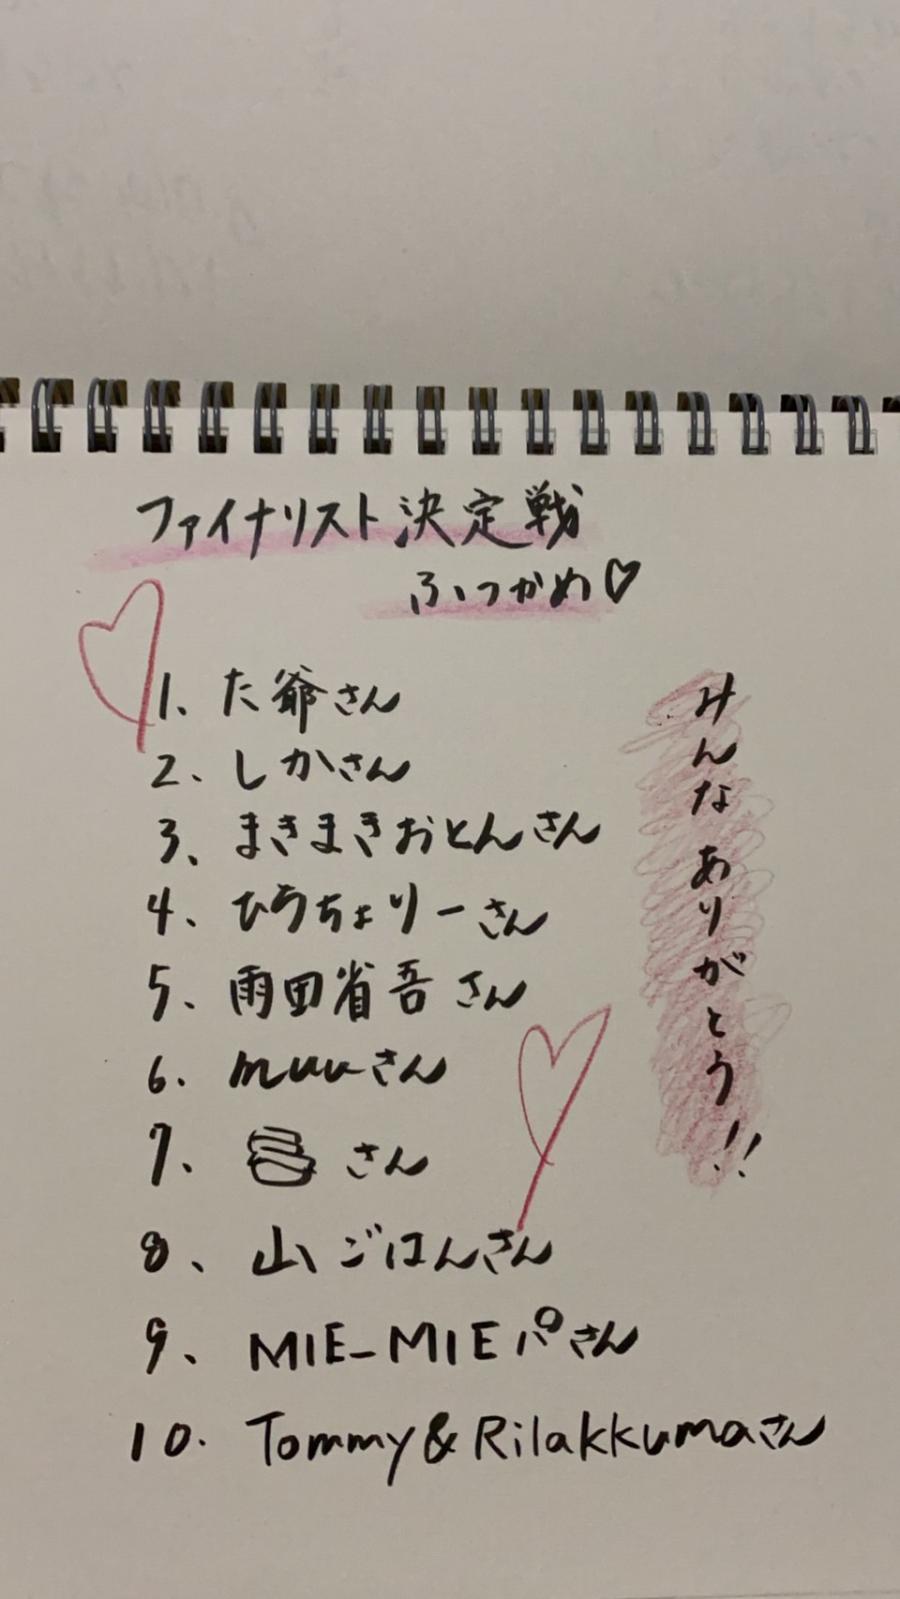 ファイナリスト決定戦
ふつかめ♡
1、た爺さん
2、しかさん
3、まきまきおとんさん
4、ひろちょりーさん
5、雨田省吾さん
6.muuさん
7、さん
8、山ごはんさん
9、MIE-MIEパさん
10.Tommy&Rilakkumaさん
みんなありがとう!!